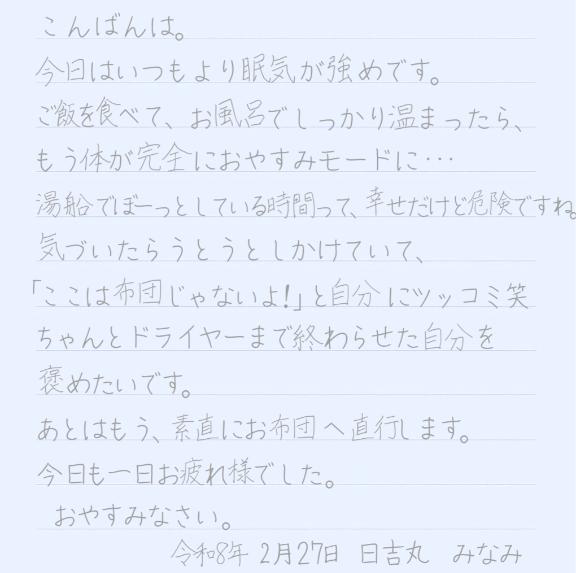 こんばんは。
今日はいつもより眠気が強めです。
ご飯を食べて、お風呂でしっかり温まったら、
もう体が完全におやすみモードに…
湯船でぼーっとしている時間って、幸せだけど危険ですね。
気づいたらうとうとしかけていて、
「ここは布団じゃないよ!」と自分にツッコミ笑
ちゃんとドライヤーまで終わらせた自分を
褒めたいです。
あとはもう、素直にお布団へ直行します。
今日も一日お疲れ様でした。
おやすみなさい。
令和8年 2月27日 日吉丸 みなみ